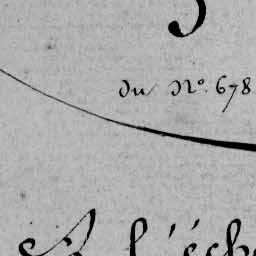 du N.º 678
A l'éch